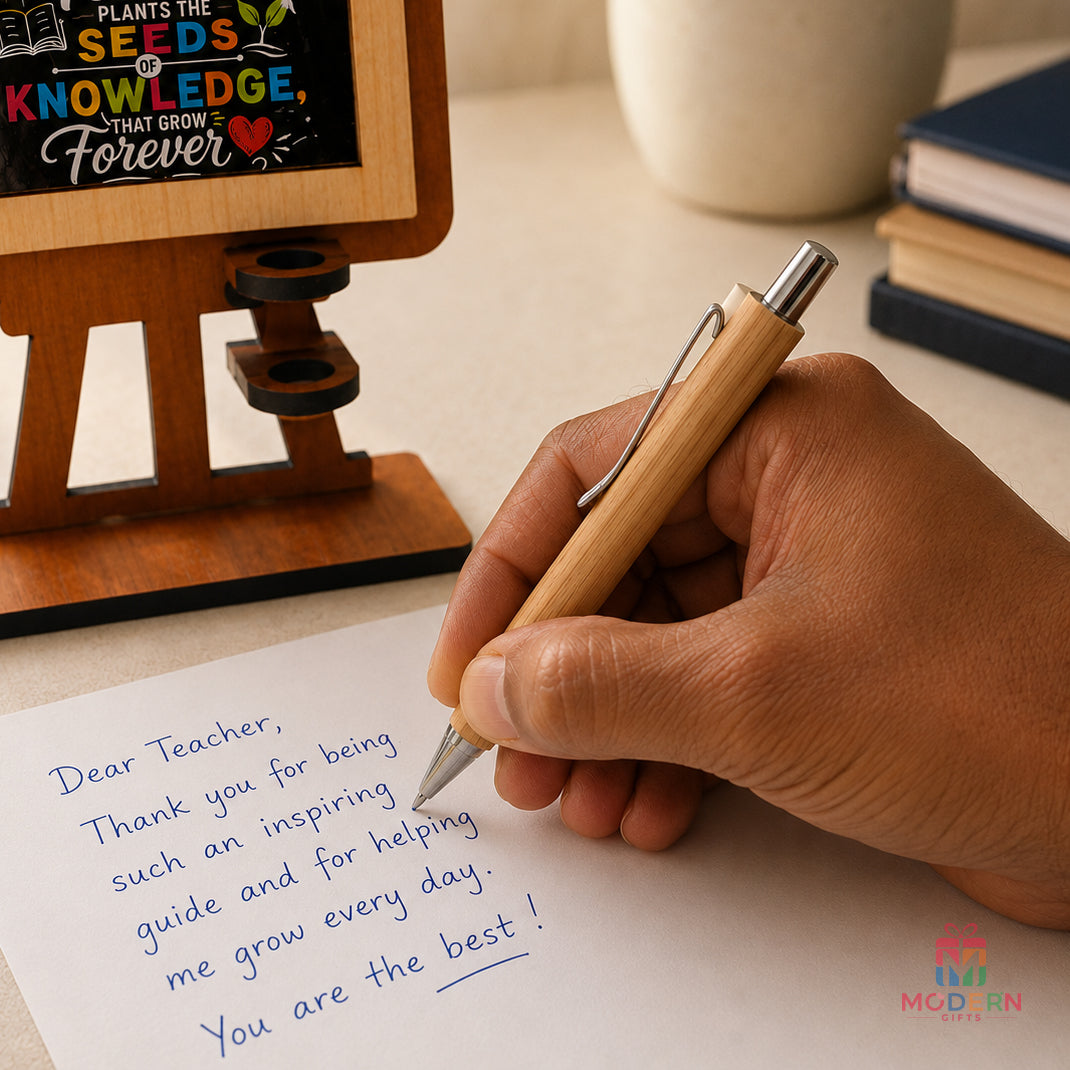 PLANTS THE
SEEDS
OF
KNOWLEDGE,
THAT GROW
Forever
Dear Teacher,
Thank you for being
such an inspiring
guide and for helping
me grow every day.
You are the best!
MODERN
GIFTS